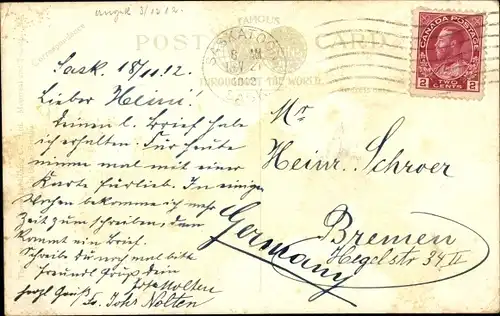 angek 3/12 12.
FAMOUS
POST CARD
SASKATOON
THROUGHOUT THE WORLD
Correspondence
CANADA POSTAGE
2 TWO CENTS 2
Sask. 18/11.12.
Lieber Heini!
Deinen l. Brief habe
ich erhalten. Für heute
nimm mal mit einer
Karte fürlieb. In einigen
Wochen bekomme ich mehr
Zeit zum schreiben, dann
kommt ein Brief.
Schreibe du noch mal bitte
Freundl Gruß dein
Joh Nolten
herzl. Gruß Fr. Johs Nolten
Mr
Heinr. Schroer
Bremen
Hegelstr 34 II
Germany